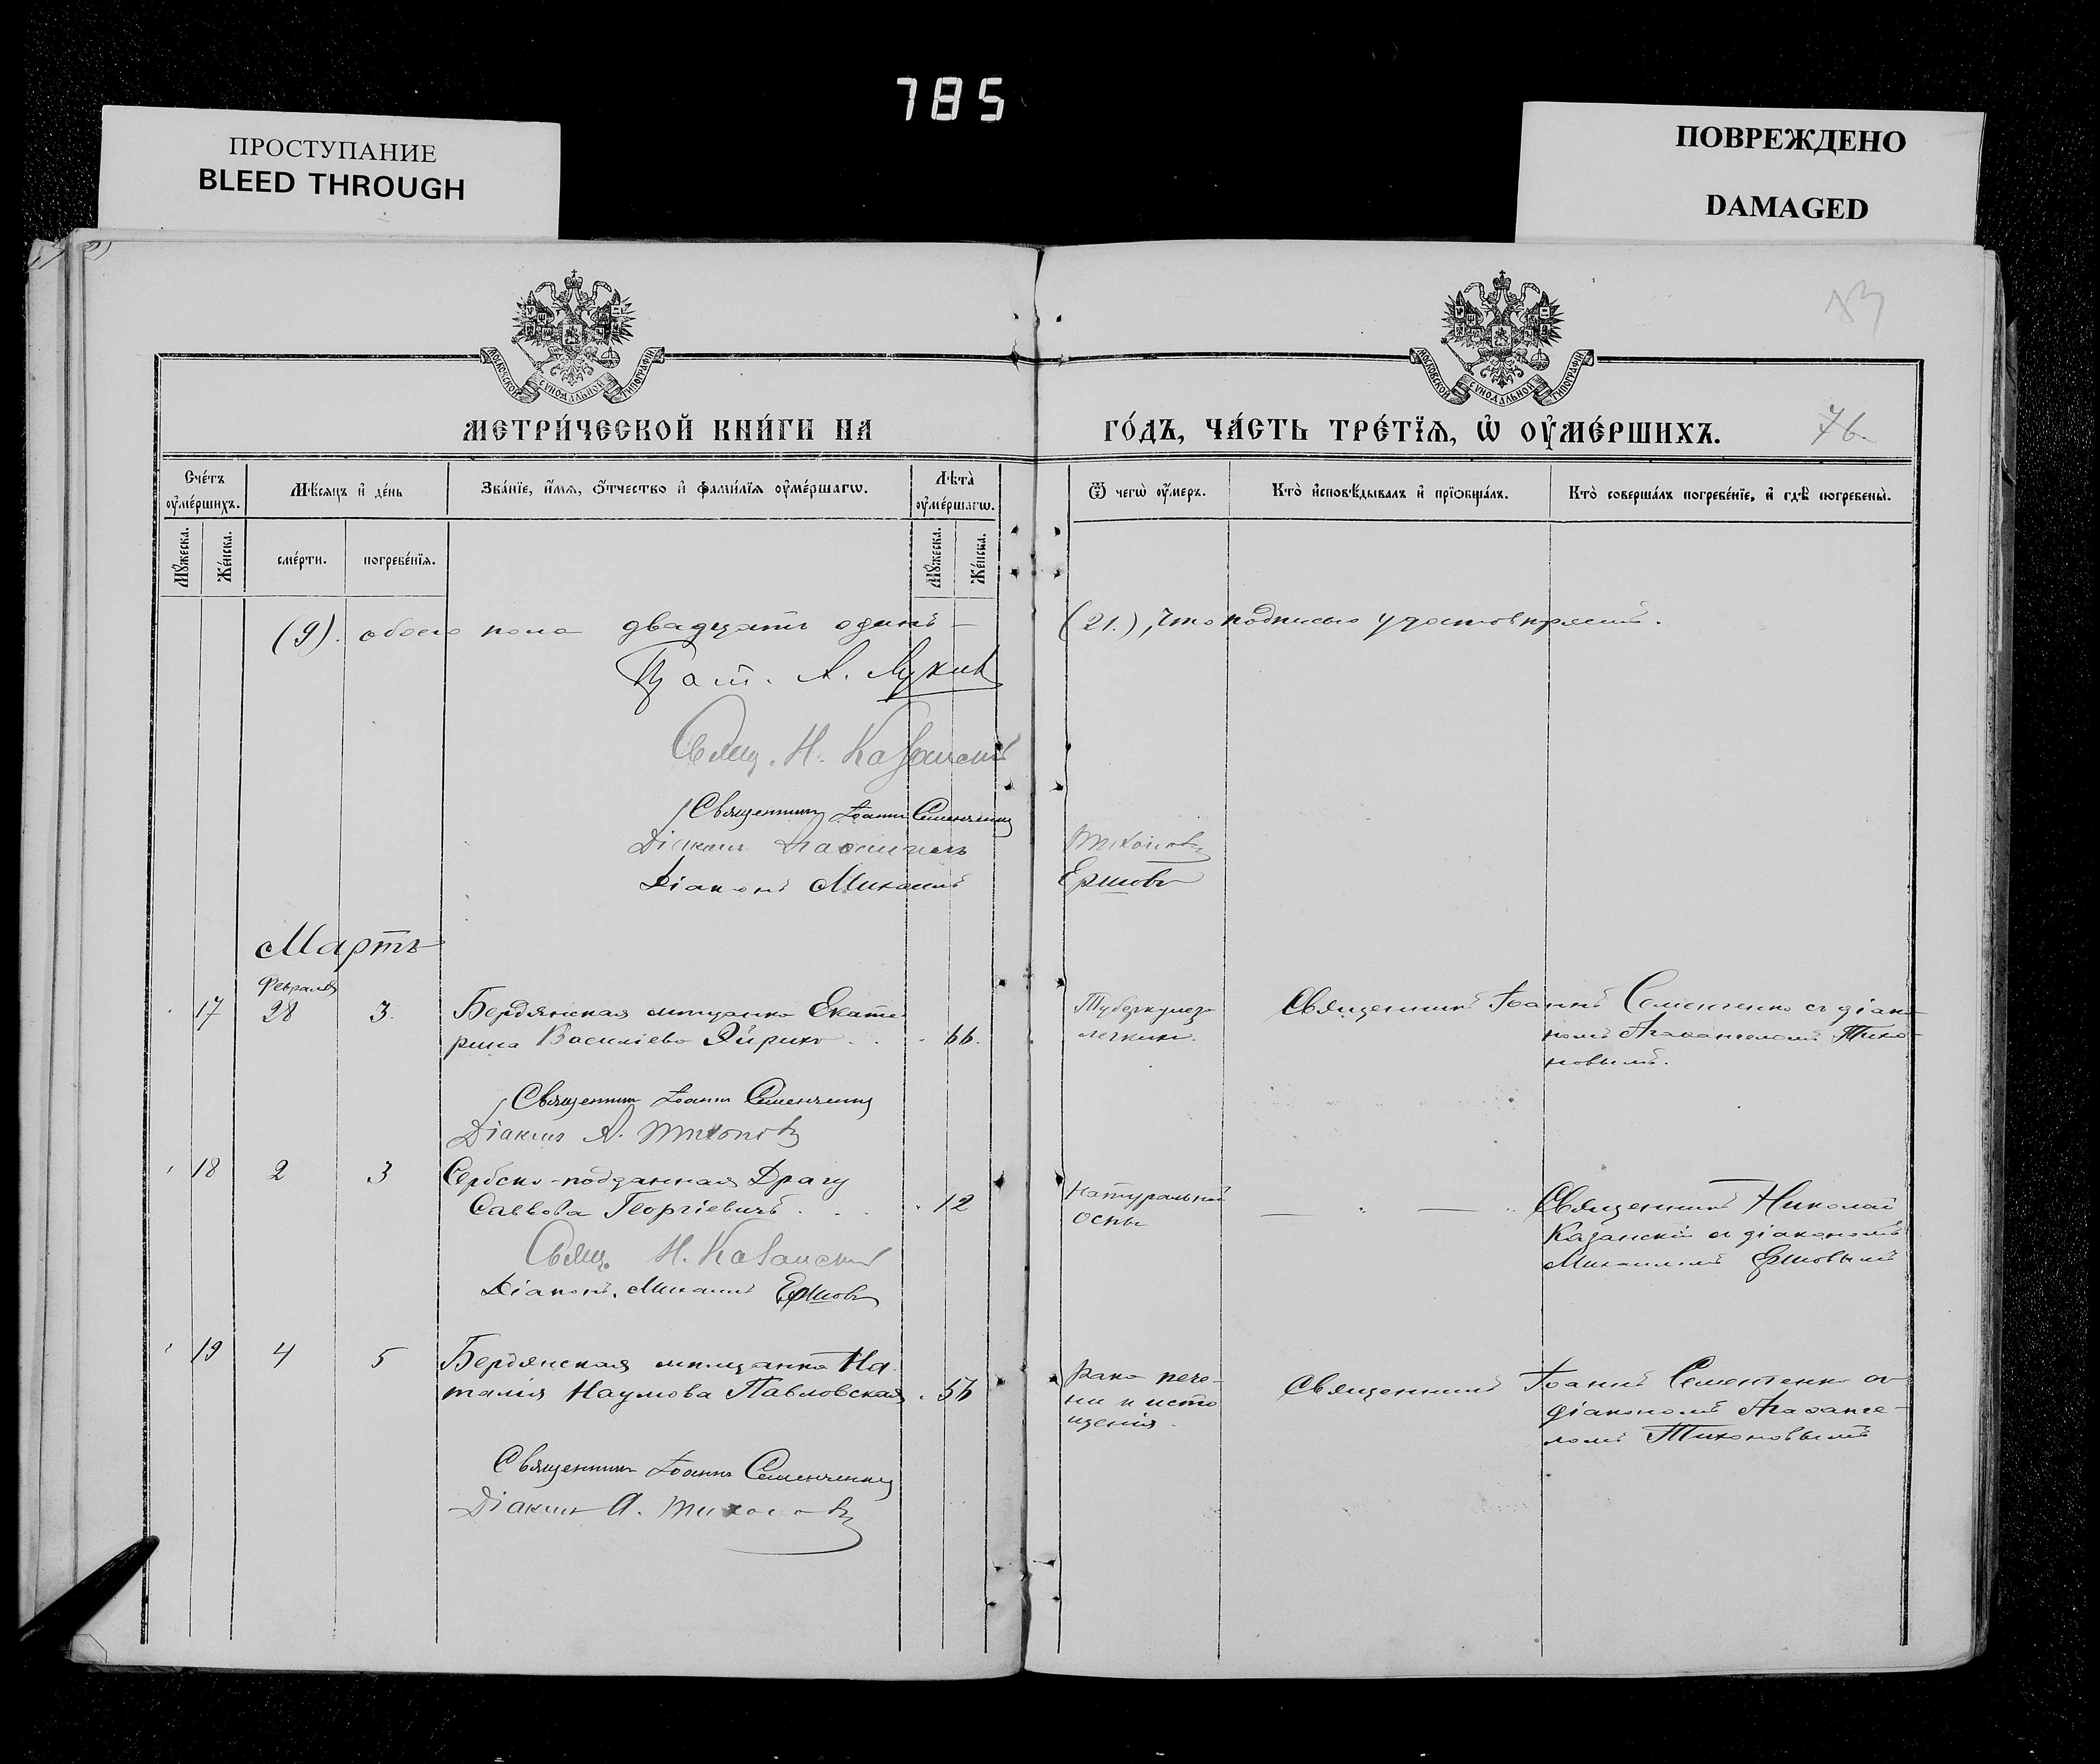 785
ПРОСТУПАНИЕ
BLEED THROUGH
ПОВРЕЖДЕНО
DAMAGED
МОСКОВСКОЙ СѴНОДАЛЬНОЙ ТИПОГРАФІИ
МОСКОВСКОЙ СѴНОДАЛЬНОЙ ТИПОГРАФІИ
МЕТРИ́ЧЕСКОЙ КНИ́ГИ НА ГО́ДЪ, ЧА́СТЬ ТРЕ́ТЇѦ, Ѡ҆ ОУ҆МЕ́РШИХЪ.
76.
Сче́тъ оу҆ме́ршихъ.
Мѣ́сѧцъ и҆ де́нь
Зва́нїе, и҆́мѧ, ѻ҆́тчество и҆ фами́лїѧ оу҆ме́ршагѡ.
Лѣ́та̀ оу҆ме́ршагѡ.
Ѿ чегѡ̀ оу҆́меръ.
Кто̀ и҆сповѣ́дывалъ и҆ прїѡбща́лъ.
Кто̀ соверша́лъ погребе́нїе, и҆ гдѣ̀ погребены̀.
Мꙋ́жеска.
Же́нска.
сме́рти.
погребе́нїѧ.
Мꙋ́жеска.
Же́нска.
(9). обоего пола двадцать одинъ – (21.), что подписью удостовѣряемъ.
Прот. А. Лукинъ
Свящ. Н. Казанскій
Священникъ Іоаннъ Семенченко
Діаконъ Агаѳангелъ Тихоновъ
Діаконъ Михаилъ Ершовъ
Мартъ
Февраля
17 28 3. Бердянская мѣщанка Екате-
рина Василіева Эйрихъ . . . 66.
Туберкулеза
легкихъ.
Священникъ Іоаннъ Семенченко съ діако-
номъ Агаѳангеломъ Тихо-
новымъ.
Священникъ Іоаннъ Семенченко
Діаконъ А. Тихоновъ
18 2 3 Сербско-подданная Драгу
Саввова Георгіевичъ . . . 12
Натуральной
оспы
Священникъ Николай
Казанскій съ діакономъ
Михаиломъ Ершовымъ
Свящ. Н. Казанскій
Діаконъ Михаилъ Ершовъ
19 4 5 Бердянская мѣщанка На-
талія Наумова Павловская . 56
Рака пече-
ни и исто
щенія.
Священникъ Іоаннъ Семенченко съ
діакономъ Агаѳанге-
ломъ Тихоновымъ
Священникъ Іоаннъ Семенченко
Діаконъ А. Тихоновъ